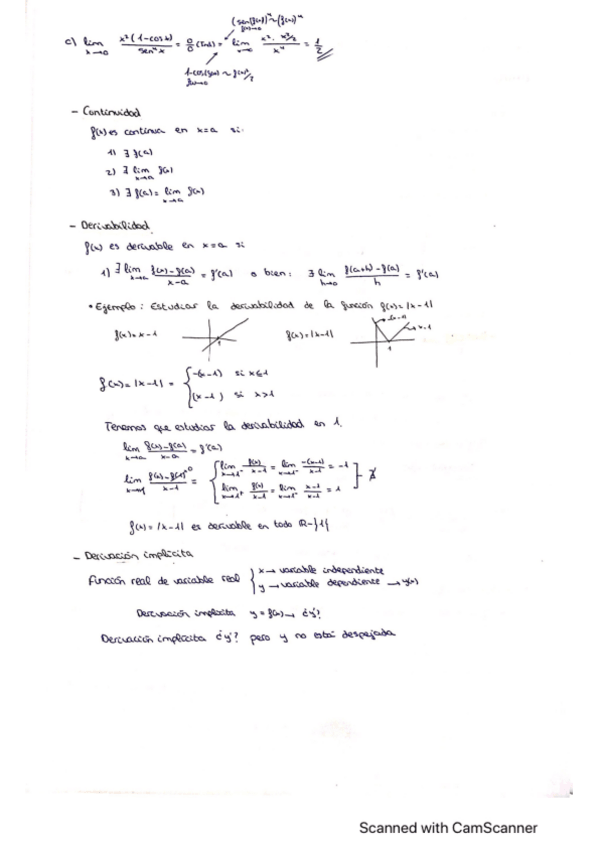 (sen f(x))ⁿ ~ (f(x))ⁿ
f(x)→0
c) lim x→0 x²(1-cosx)/sen⁴x = 0/0 (Ind) = lim x→0 x² · x²/2 / x⁴ = 1/2
1-cos(f(x)) ~ f(x)²/2
f(x)→0
- Continuidad
f(x) es continua en x=a si:
1) ∃ f(a)
2) ∃ lim x→a f(x)
3) ∃ f(a) = lim x→a f(x)
- Derivabilidad
f(x) es derivable en x=a si
1) ∃ lim x→a f(x)-f(a)/x-a = f'(a) o bien: ∃ lim h→0 f(a+h)-f(a)/h = f'(a)
• Ejemplo: Estudiar la derivabilidad de la función f(x)=|x-1|
f(x)=x-1 1 f(x)=|x-1| -(x-1) x-1 1
f(x)=|x-1| = { -(x-1) si x≤1
(x-1) si x>1
Tenemos que estudiar la derivabilidad en 1.
lim x→a f(x)-f(a)/x-a = f'(a)
lim x→1 f(x)-f(1)⁰/x-1 = { lim x→1⁻ f(x)/x-1 = lim x→1⁻ -(x-1)/x-1 = -1
lim x→1⁺ f(x)/x-1 = lim x→1⁺ x-1/x-1 = 1 ] → ∄
f(x)=|x-1| es derivable en todo ℝ-{1}
- Derivación implícita
Función real de variable real { x → variable independiente
y → variable dependiente → y(x)
Derivación implícita y = f(x) → ¿y'?
Derivación implícita ¿y'? pero y no está despejada
Scanned with CamScanner